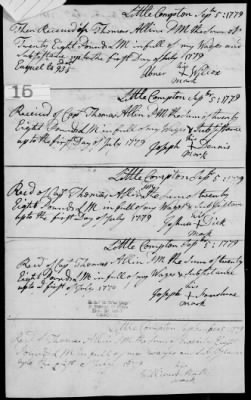 Little Compton Sept 5: 1779
Then Receivd of Thomas Allin the Sum of
Twenty Eight Pounds in full of my Wages and
Subsistance up to the first Day of July 1779
Equel to
his
Abner Wilcox
mark
16
Little Compton Sept 5: 1779
Receivd of Capt Thomas Allin the Sum of twenty
Eight Pounds in full of my Wages & Subsistance
up to the First Day of July 1779
his
Joseph + Dennis
mark
Little Compton Sept 5: 1779
Recd of Capt Thomas Allin the Sum of twenty
Eight Pounds in full of my Wages & Subsistance
up to the first Day of July 1779
his
Joshua + Dick
mark
Little Compton Sept 5: 1779
Recd of Capt Thomas Allin the Sum of twenty
Eight Pounds in full of my Wages and Subsistance
up to first of July 1779
his
Joseph +
mark
Little Compton 1779
Recd of Capt Thomas Allin the Sum of twenty Eight
Pounds in full of my wages and Subsistance
up to first July 1779
his
William
mark